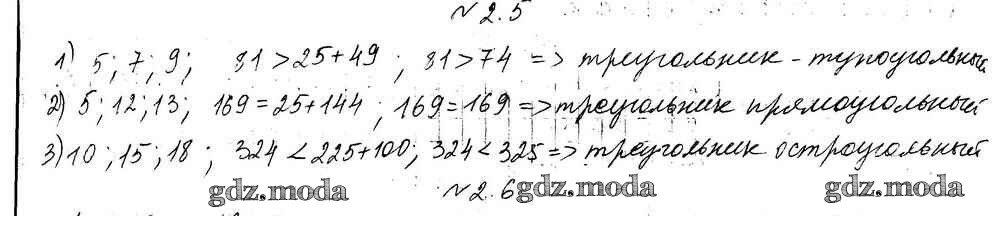 № 2.5
1) 5; 7; 9; 81 > 25+49; 81 > 74 => треугольник - тупоугольный
2) 5; 12; 13; 169 = 25+144; 169 = 169 => треугольник прямоугольный
3) 10; 15; 18; 324 < 225+100; 324 < 325 => треугольник остроугольный
№ 2.6
gdz.moda gdz.moda gdz.moda